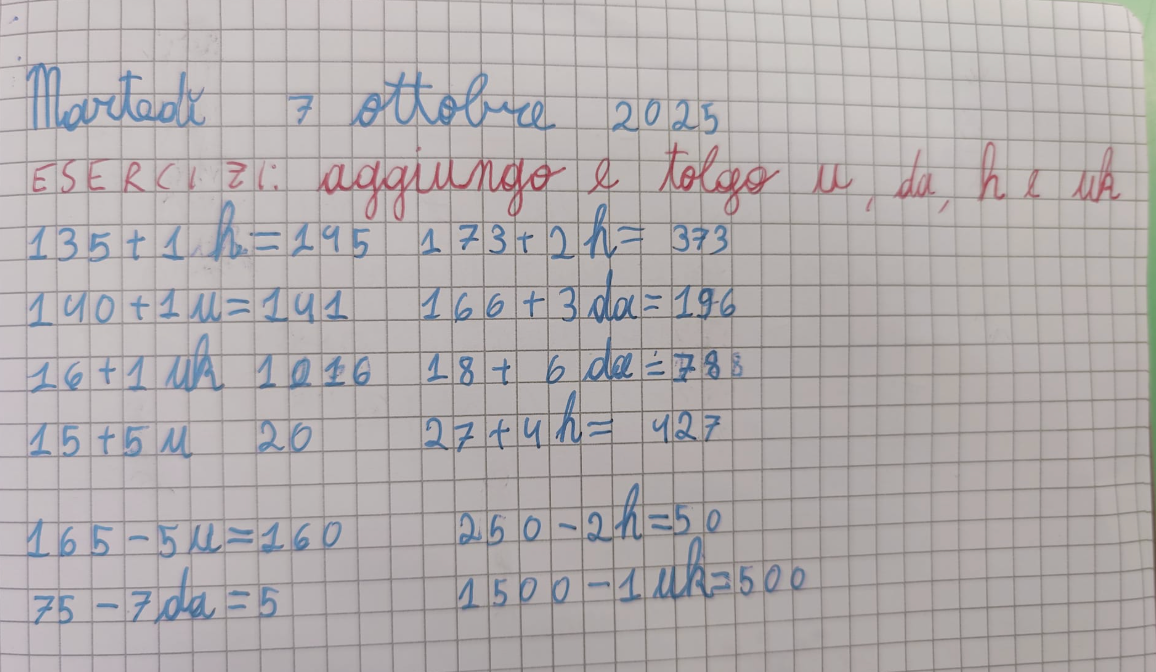 Martedì 7 ottobre 2025
ESERCIZI: aggiungo e tolgo u, da, h e uk
135 + 1 h = 145 173 + 2 h = 373
140 + 1 u = 141 166 + 3 da = 196
16 + 1 uk 1016 18 + 6 da = 788
15 + 5 u 20 27 + 4 h = 427
165 - 5 u = 160 250 - 2 h = 50
75 - 7 da = 5 1500 - 1 uk = 500